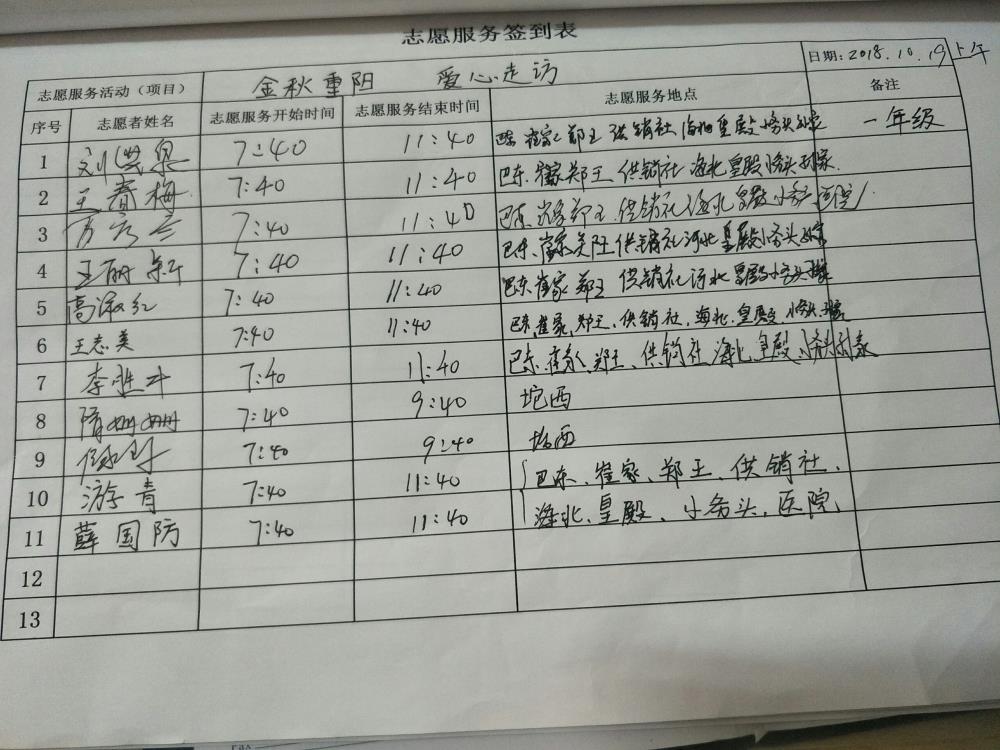 志愿服务签到表
志愿服务活动（项目） 金秋重阳 爱心走访 日期：2018.10.19上午
序号 志愿者姓名 志愿服务开始时间 志愿服务结束时间 志愿服务地点 备注
1 刘洪泉 7:40 11:40 巴东 崔家 郑王 供销社 海北 皇殿 一年级
2 王春梅 7:40 11:40 巴东、崔家 郑王、供销社 海北 皇殿
3 7:40 11:40 巴东、崔家 郑王、供销社 海北 皇殿
4 王丽 7:40 11:40 巴东、崔家 供销社 河北 皇殿
5 高淑红 7:40 11:40 巴东 崔家 郑王 供销社 河北 皇殿
6 王志美 7:40 11:40 巴东，崔家，郑王，供销社，海北，皇殿
7 李胜 7:40 11:40 巴东、崔家、郑王、供销社 海北、皇殿
8 隋姗姗 7:40 9:40 坨西
9 7:40 9:40 西
10 游青 7:40 11:40 巴东、崔家、郑王、供销社、
11 薛国防 7:40 11:40 海北、皇殿、小务头、医院、
12
13